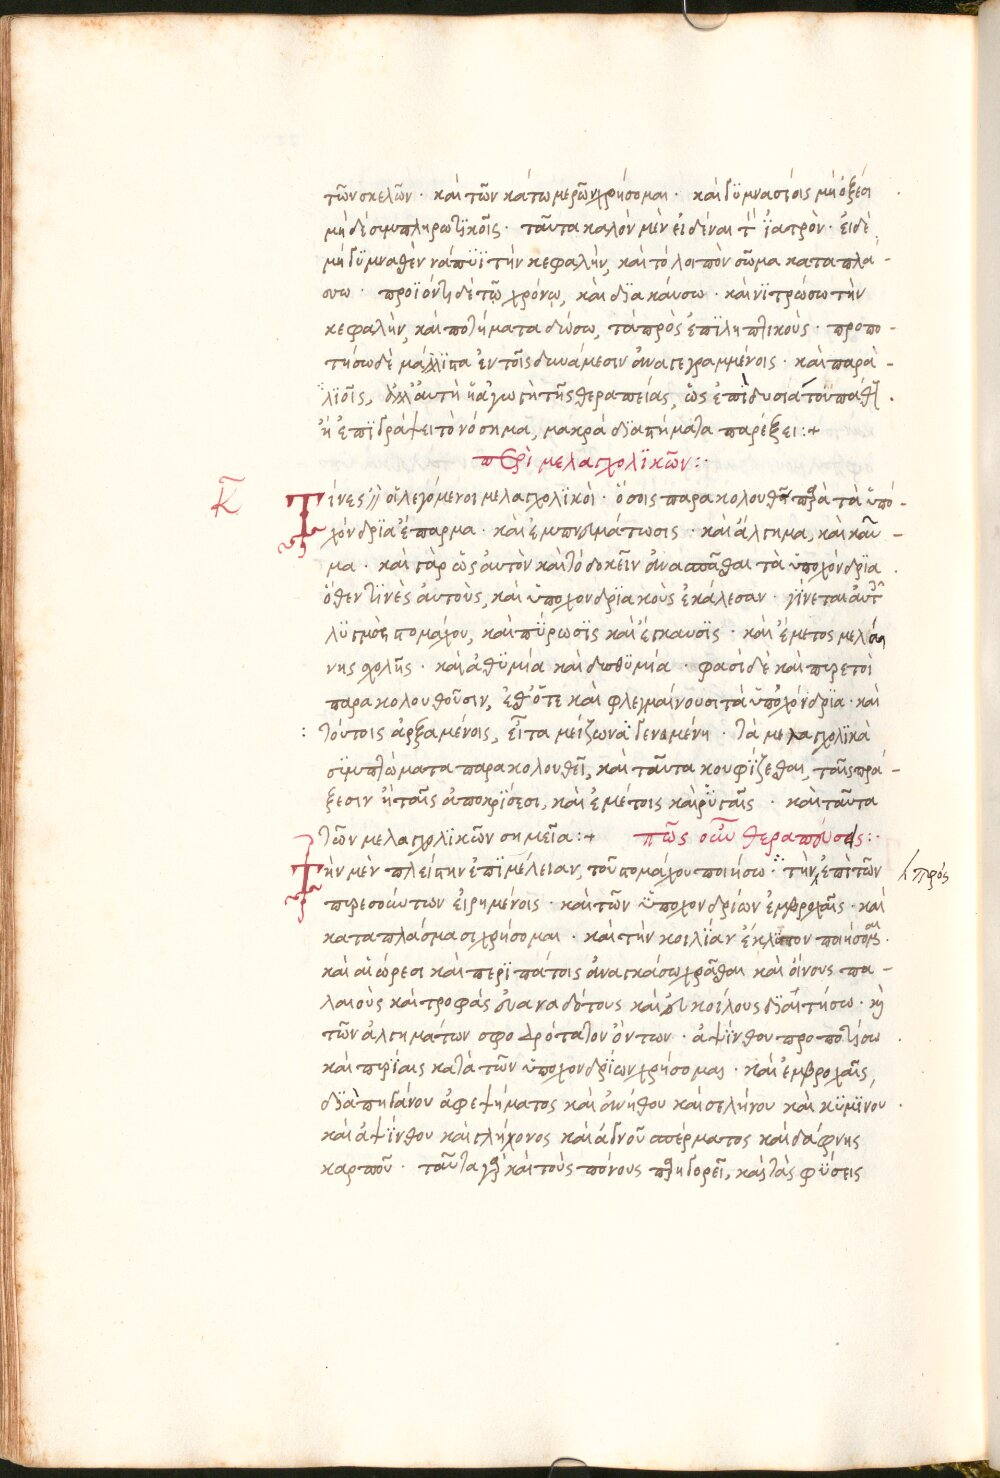 τῶν σκελῶν · καὶ τῶν κάτω μερῶν χρήσομαι · καὶ γϋμνασίοις μὴ ὀξέσι
μηδὲ συμπληρωτϊκοῖς · ταῦτα καλὸν μὲν εἰδέναι τ̀ ἰατρὸν · εἰ δὲ
μὴ γϋμναθὲν νάπϋϊ τὴν κεφαλὴν, καὶ τὸ λοιπὸν σῶμα καταπλά-
σω · προϊόντι δὲ τῷ χρόνῳ, καὶ δϊακαύσω · καὶ νϊτρώσω τὴν
κεφαλὴν, καὶ ποτήματα δώσω, τὰ πρὸς ἐπϊληπτικοὺς · προπο-
τήσω δὲ μάλϊστα ἐν τοῖς δυνάμεσιν ἀναγεγραμμένοις · καὶ παρα-
λϊοῖς, ἀλλ' αὐτὴ ἡ ἀγωγὴ τῆς θεραπείας, ὡς ἐπὶ τοῦ πάθ
ἢ ἐπϊγράψει τὸ νόσημα, μακρὰ δϊαστήματα παρέξει :+
περὶ μελαγχολϊκῶν :·
κ̅
Τίνες οἱ λεγόμενοι μελαγχολϊκοὶ · ὅσοις παρακολουθεῖ παρὰ τὰ ὑπο-
χόνδρϊα ἔπαρμα · καὶ ἐμπνευμάτωσις · καὶ ἄλγημα, καὶ καῦ-
μα · καὶ γὰρ ὡς αὐτὸν καὶ τὸ δοκεῖν ἀνασπᾶσθαι τὰ ὑποχόνδρϊα ·
ὅθεν τϊνὲς αὐτοὺς, καὶ ὑποχονδρϊακοὺς ἐκάλεσαν · γίνεται αὐτ
λϋγμὸς στομάχου, καὶ πϋρωσϊς καὶ ἔγκαυσϊς · καὶ ἔμετος μελαί
νης χολῆς · καὶ ἀθϋμία καὶ δυσθϋμία · φασὶ δὲ καὶ πυρετοὶ
παρακολουθοῦσιν, ἔσθ' ὅτε καὶ φλεγμαίνουσι τὰ ὑποχόνδρϊα · καὶ
: τούτοις ἀρξαμένοις, εἶτα μείζωνα γενομένη · τὰ μελαγχολϊκὰ
σϋμπτώματα παρακολουθεῖ, καὶ ταῦτα κουφίζεσθαι, ταῖς πρά-
ξεσιν ἢ ταῖς ἀποκρϊσεσι, καὶ ἐμέτοις καὶ ἐρϋγαῖς · καὶ ταῦτα
τῶν μελαγχολϊκῶν σημεῖα :+ πῶς οὖν θεραπεύσεις :·
Τὴν μὲν πλείστην ἐπϊμέλειαν, τοῦ στομάχου ποιήσω · τὴν ἐπὶ τῶν
πρός
πυρεσσόντων εἰρημένοις · καὶ τῶν ὑποχονδρίων ἐμβροχαῖς · καὶ
καταπλάσμασι χρήσομαι · καὶ τὴν κοιλϊαν ἔκλϋτον ποιήσομαι ·
καὶ αἰώρεσι καὶ περϊπάτοις ἀναγκάσω χρᾶσθαι καὶ οἴνους πα-
λαιοὺς καὶ τροφὰς εὐαναδότους καὶ εὐκοιλους δϊαιτήσω · κὴ
τῶν ἀλγημάτων σφοδρότατον ὄντων · ἀψίνθου προποτίσω ·
καὶ πυρίαις κατὰ τῶν ὑποχονδρίων χρήσομαι · καὶ ἐμβροχαῖς,
δϊὰ πηγάνου ἀφεψήματος καὶ ἀνήθου καὶ σελήνου καὶ κϋμίνου ·
καὶ ἀψίνθου καὶ γλήχονος καὶ ἄγνου σπέρματος καὶ δάφνης
καρποῦ · ταῦτα γὰρ καὶ τοὺς πόνους παρηγορεῖ, καὶ τὰς φύσεις